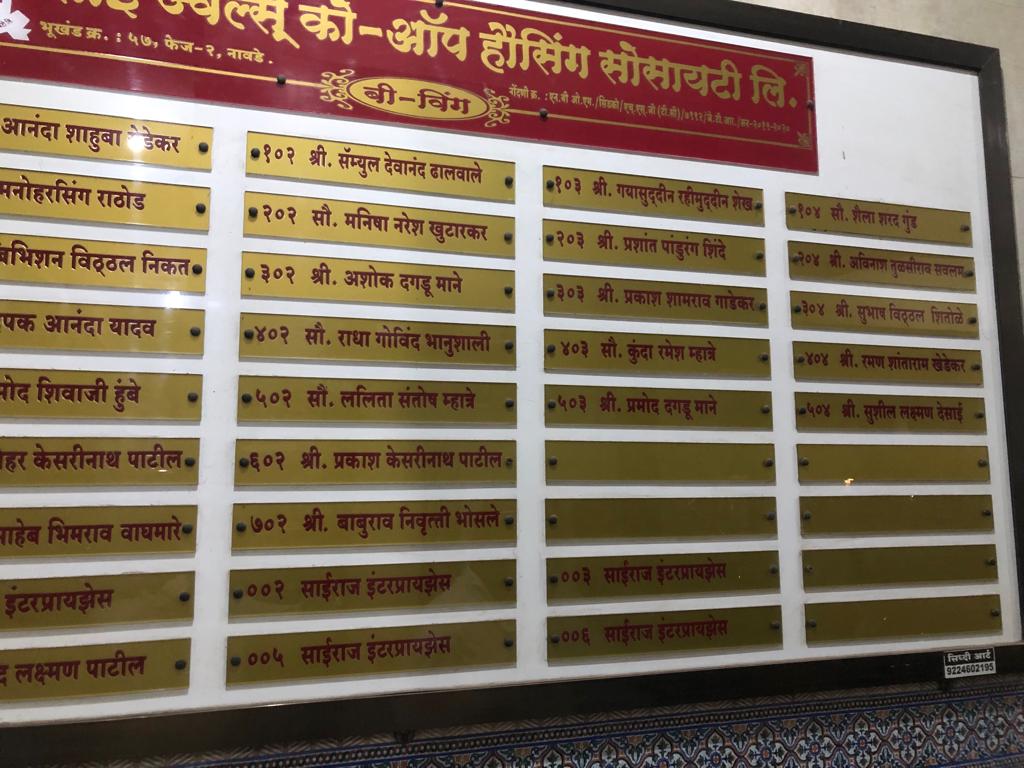 ज्वेल्स् को-ऑप हौसिंग सोसायटी लि.
भूखंड क्र. : ५७, फेज-२, नावडे.
बी-विंग
आनंदा शाहुबा
१०२ श्री. सॅम्युल देवानंद ढालवाले
१०३ श्री. गयासुद्दीन रहीमुद्दीन शेख
१०४ सौ. शैला शरद गुंड
मनोहरसिंग राठोड
२०२ सौ. मनिषा नरेश खुटारकर
२०३ श्री. प्रशांत पांडुरंग शिंदे
२०४ श्री. अविनाश तुळसीराव सवलम
बिभिशन विठ्ठल निकत
३०२ श्री. अशोक दगडू माने
३०३ श्री. प्रकाश शामराव गाडेकर
३०४ श्री. सुभाष विठ्ठल शितोळे
पक आनंदा यादव
४०२ सौ. राधा गोविंद भानुशाली
४०३ सौ. कुंदा रमेश म्हात्रे
४०४ श्री. रमण शांताराम खेडेकर
मोद शिवाजी हुंबे
५०२ सौ. ललिता संतोष म्हात्रे
५०३ श्री. प्रमोद दगडू माने
५०४ श्री. सुशील लक्ष्मण देसाई
हर केसरीनाथ पाटील
६०२ श्री. प्रकाश केसरीनाथ पाटील
साहेब भिमराव वाघमारे
७०२ श्री. बाबुराव निवृत्ती भोसले
इंटरप्रायझेस
००२ साईराज इंटरप्रायझेस
००३ साईराज इंटरप्रायझेस
द लक्ष्मण पाटील
००५ साईराज इंटरप्रायझेस
००६ साईराज इंटरप्रायझेस
सिध्दी आर्ट
9224602195